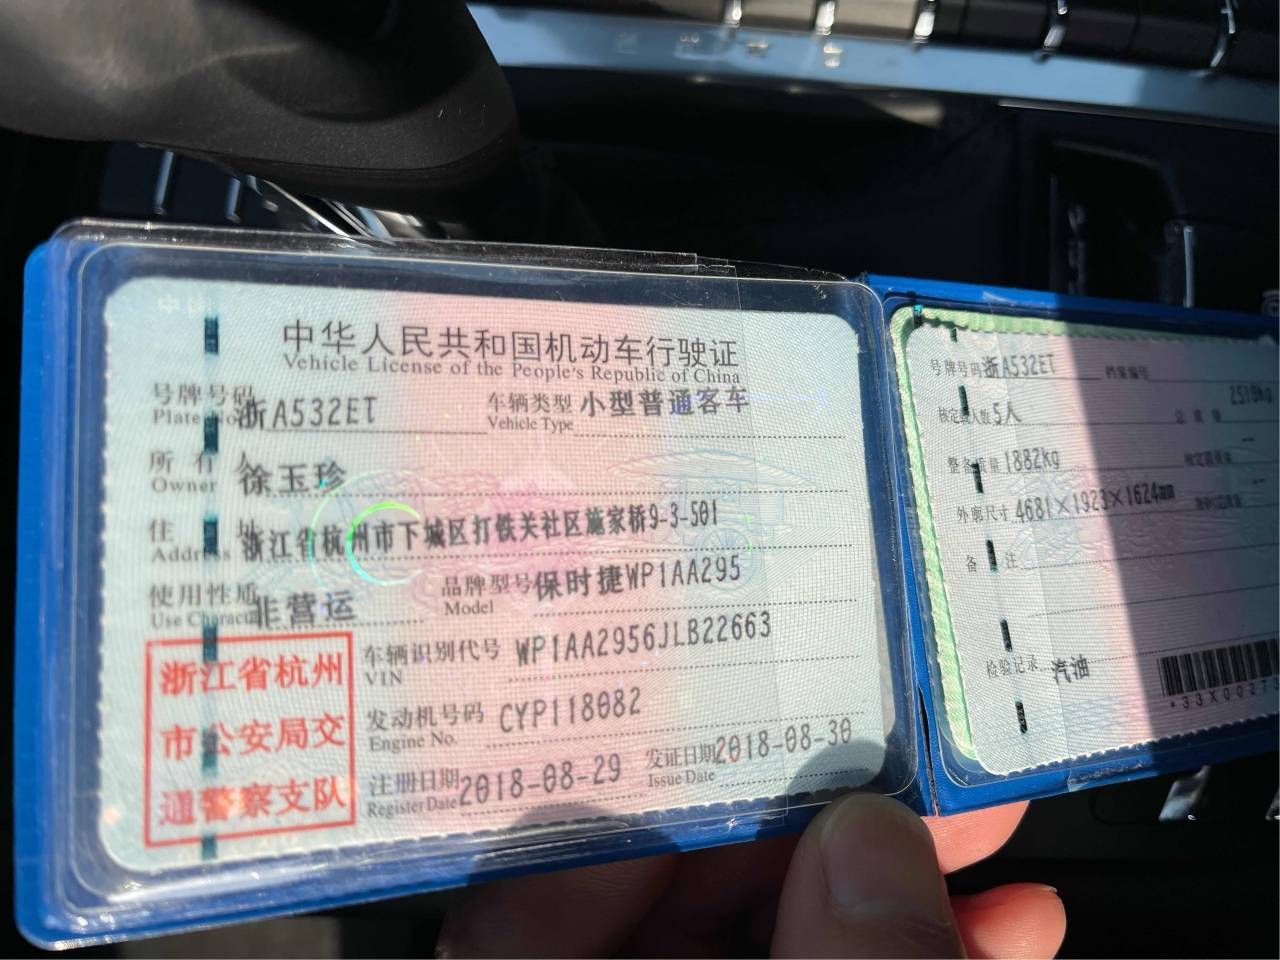 中华人民共和国机动车行驶证
Vehicle License of the People's Republic of China
号牌号码 浙A532ET 车辆类型 小型普通客车
Plate No. Vehicle Type
所有人 徐玉珍
Owner
住址 浙江省杭州市下城区打铁关社区施家桥9-3-501
Address
使用性质 非营运 品牌型号 保时捷WP1AA295
Use Character Model
车辆识别代号 WP1AA2956JLB22663
VIN
发动机号码 CYP118082
Engine No.
注册日期 2018-08-29 发证日期 2018-08-30
Register Date Issue Date
浙江省杭州
市公安局交
通警察支队
号牌号码 浙A532ET 档案编号
核定载人数 5人 总质量 2510kg
整备质量 1882kg 核定载质量
外廓尺寸 4681×1923×1624mm
备注
检验记录 汽油